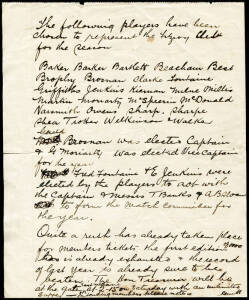 The following players have been
chosen to represent the Fitzroy Club
for the season
Baker Barker Bartlett Beacham Best
Brophy Brosnan Clarke Fontaine
Griffiths Jenkins Kiernan Milne Millis
Martin Moriarty McSpeerin McDonald
Naismith Sharp, Sharpe
Shea Trotter Wilkinson & Walker
Brosnan was elected Captain
& G Moriarty was elected Vice Captain
for the year
Fred Fontaine & E Jenkins were
elected by the players to act with
the Captain & Messrs Banks &
to form the Match Committee for
the year.
Quite a rush has already taken place
for members tickets the first edition 3000
is already exhausted & the record
of last year is already sure to be
beaten. The Hon Treasurer will be
at the Saturday with an unlimited
supply members